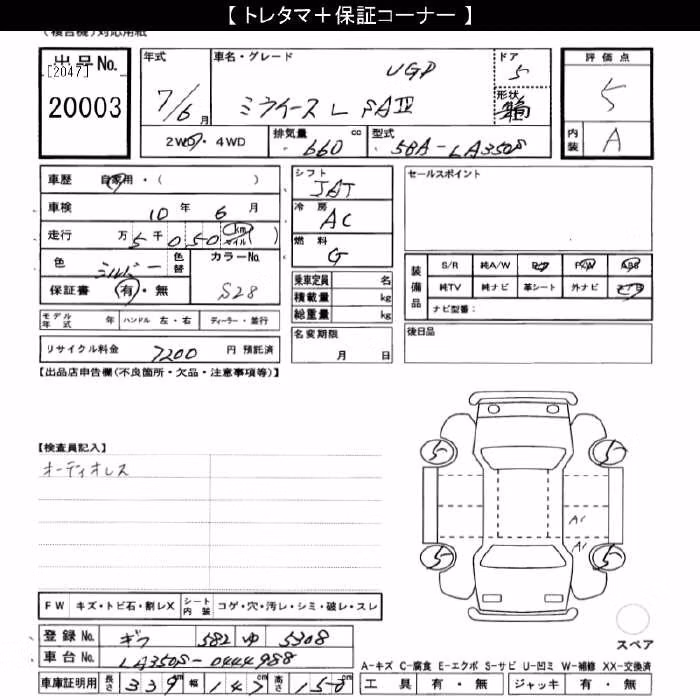 【 トレタマ＋保証コーナー 】
(複合機)対応用紙
出品No.
[2047]
20003
年式
7/6 月
車名・グレード
UGP
ミライース L SAⅢ
ドア
5
形状
評価点
5
内装
A
2WD・4WD
排気量
660 cc
型式
5BA-LA350S
車歴 自家用・( )
車検 10 年 6 月
走行 万 5 千 0 5 0 km マイル ( )
色 シルバー 色替
カラーNo.
S28
保証書 有・無
シフト
冷房
AC
燃料
G
乗車定員 名
積載量 kg
総重量 kg
名変期限
月 日
モデル年式 年 ハンドル 左・右 ディーラー・並行
リサイクル料金 7200 円 預託済
セールスポイント
装備品
S/R 純A/W P/S P/W ABS
純TV 純ナビ 革シート 外ナビ エアB
ナビ型番：
後日品
【出品店申告欄(不良箇所・欠品・注意事項等)】
【検査員記入】
オーディオレス
5 5
A1
A1
5 5
スペア
FW キズ・トビ石・割レX シート内装 コゲ・穴・汚レ・シミ・破レ・スレ
登録No. ギフ 582 ゆ 5308
車台No. LA350S-0444988
車庫証明用 長さ 339cm 幅 147cm 高さ 150cm
A-キズ C-腐食 E-エクボ S-サビ U-凹ミ W-補修 XX-交換済
工具 有・無 ジャッキ 有・無